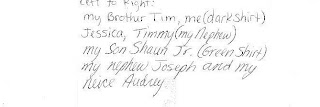 Left to Right:
my Brother Tim, me (dark shirt)
Jessica, Timmy (my Nephew)
my Son Shaun Jr. (Green Shirt)
my nephew Joseph and my
Neice Audrey